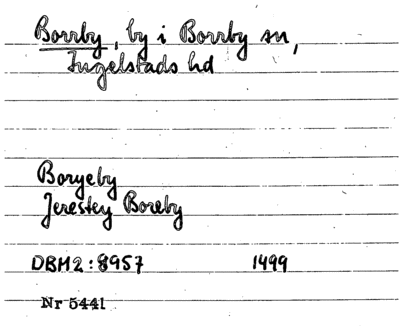 Borrby, by i Borrby sn,
Ingelstads hd
Boryeby
Jerestey Boreby
DBH2:8957 1499
Nr 5441